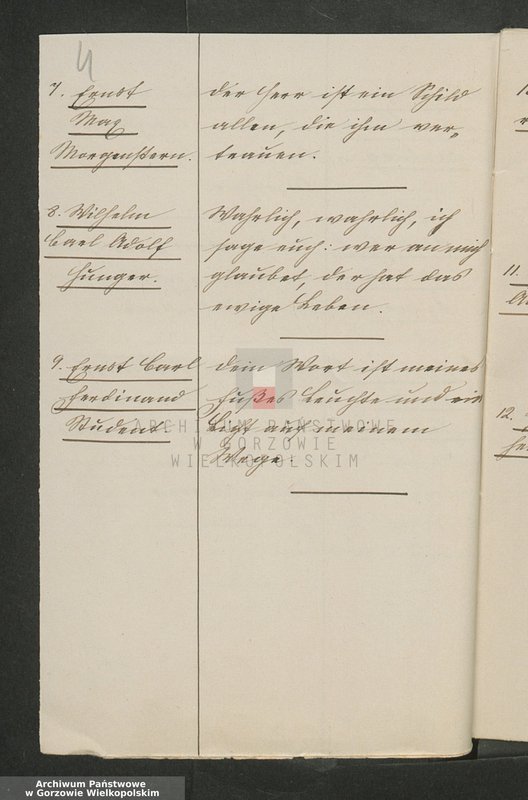 4
7. Ernst
Max
Morgenstern.
der Herr ist ein Schild
allen, die ihm ver-
trauen.
8. Wilhelm
Carl Adolf
Hunger.
Wahrlich, wahrlich, ich
sage euch: wer an mich
glaubet, der hat das
ewige Leben.
9. Ernst Carl
Ferdinand
Student
dein Wort ist meines
Fußes Leuchte und ein
Licht auf meinem
Wege.
11.
12.
ARCHIWUM PAŃSTWOWE
W GORZOWIE
WIELKOPOLSKIM
Archiwum Państwowe
w Gorzowie Wielkopolskim